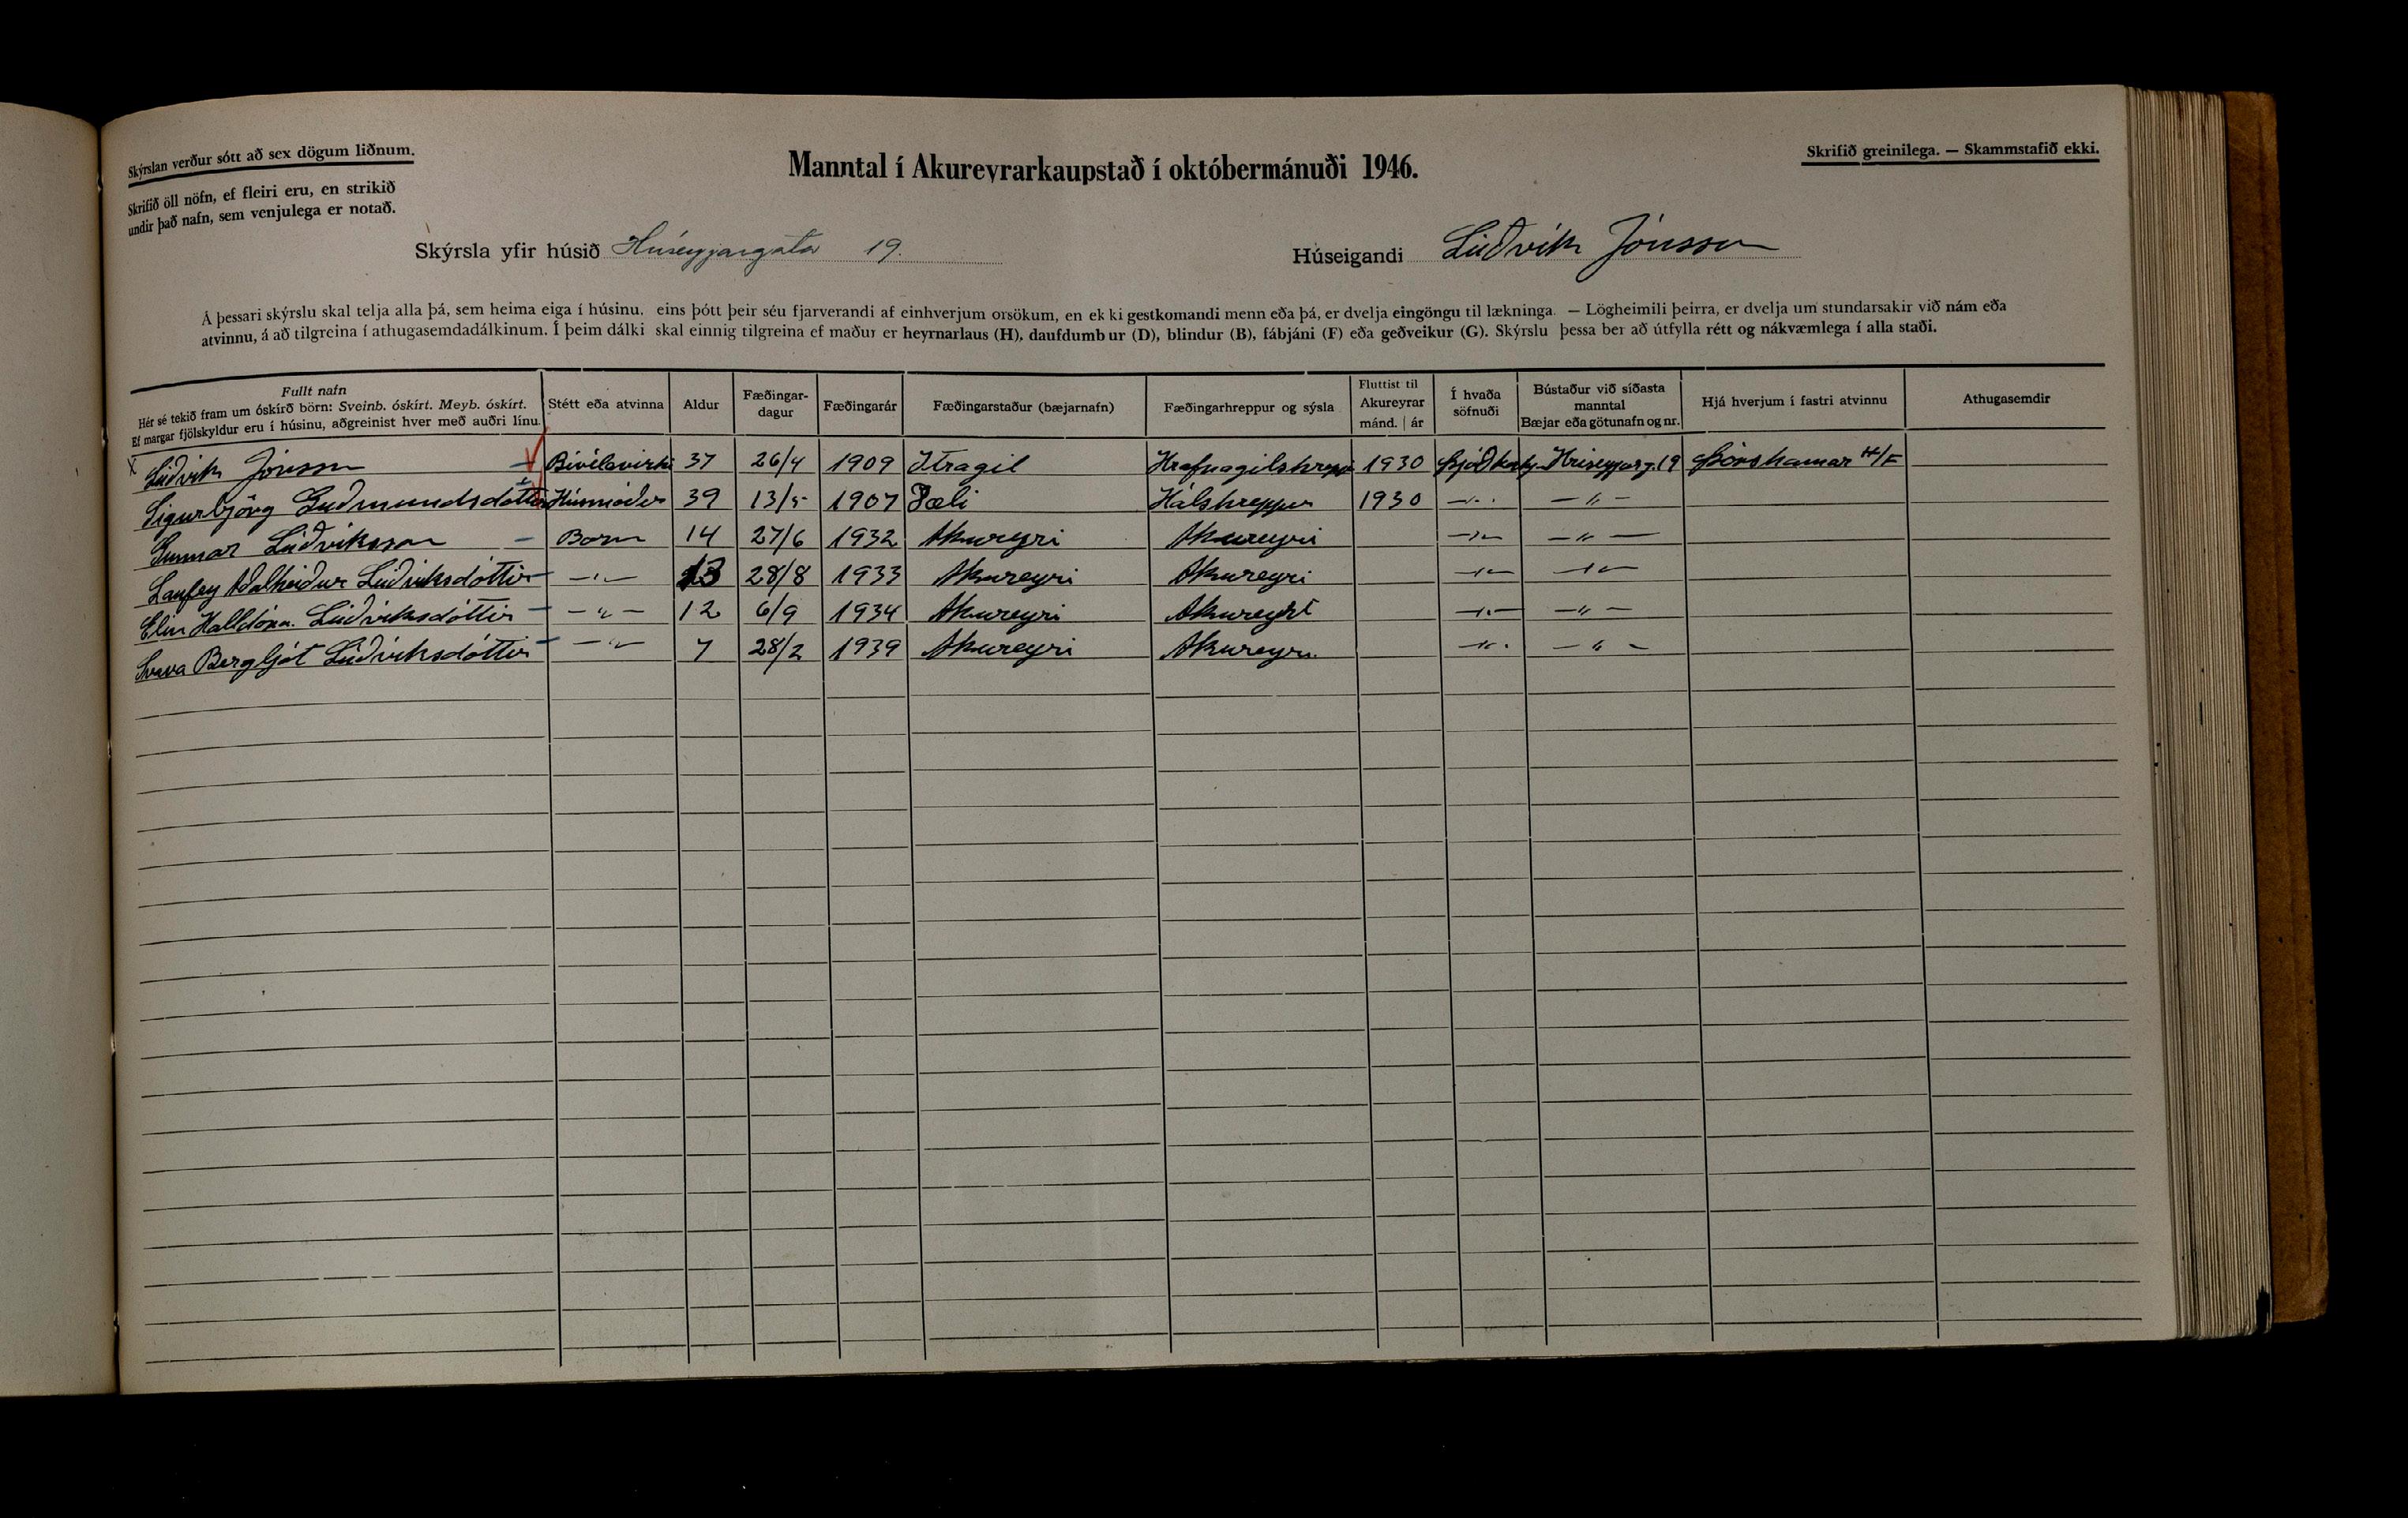 Skýrslan verður sótt að sex dögum liðnum.
Skrifið öll nöfn, ef fleiri eru, en strikið
undir það nafn, sem venjulega er notað.
Manntal í Akureyrarkaupstað í októbermánuði 1946.
Skrifið greinilega. — Skammstafið ekki.
Skýrsla yfir húsið Hríseyjargata 19.
Húseigandi Lúðvík Jónsson
Á þessari skýrslu skal telja alla þá, sem heima eiga í húsinu, eins þótt þeir séu fjarverandi af einhverjum orsökum, en ekki gestkomandi menn eða þá, er dvelja eingöngu til lækninga. — Lögheimili þeirra, er dvelja um stundarsakir við nám eða
atvinnu, á að tilgreina í athugasemdadálkinum. Í þeim dálki skal einnig tilgreina ef maður er heyrnarlaus (H), daufdumbur (D), blindur (B), fábjáni (F) eða geðveikur (G). Skýrslu þessa ber að útfylla rétt og nákvæmlega í alla staði.
Fullt nafn
Hér sé tekið fram um óskírð börn: Sveinb. óskírt. Meyb. óskírt.
Ef margar fjölskyldur eru í húsinu, aðgreinist hver með auðri línu.
Stétt eða atvinna
Aldur
Fæðingar-
dagur
Fæðingarár
Fæðingarstaður (bæjarnafn)
Fæðingarhreppur og sýsla
Fluttist til
Akureyrar
mánd. | ár
Í hvaða
söfnuði
Bústaður við síðasta
manntal
Bæjar eða götunafn og nr.
Hjá hverjum í fastri atvinnu
Athugasemdir
x Lúðvík Jónsson Bifvélavirki 37 26/4 1909 Ytragil Hrafnagilshreppi 1930 Þjóðkirkj. Hríseyjarg. 19 Þórshamar H/F
Sigurbjörg Guðmundsdóttir Húsmóðir 39 13/5 1907 Sæli Hálshreppur 1930 —"— —"—
Gunnar Lúðviksson Barn 14 27/6 1932 Akureyri Akureyri —"— —"—
Laufey Aðalheiður Lúðviksdóttir —"— 13 28/8 1933 Akureyri Akureyri —"— —"—
Elín Halldóra Lúðviksdóttir —"— 12 6/9 1934 Akureyri Akureyri —"— —"—
Svava Bergljót Lúðviksdóttir —"— 7 28/2 1939 Akureyri Akureyri —"— —"—